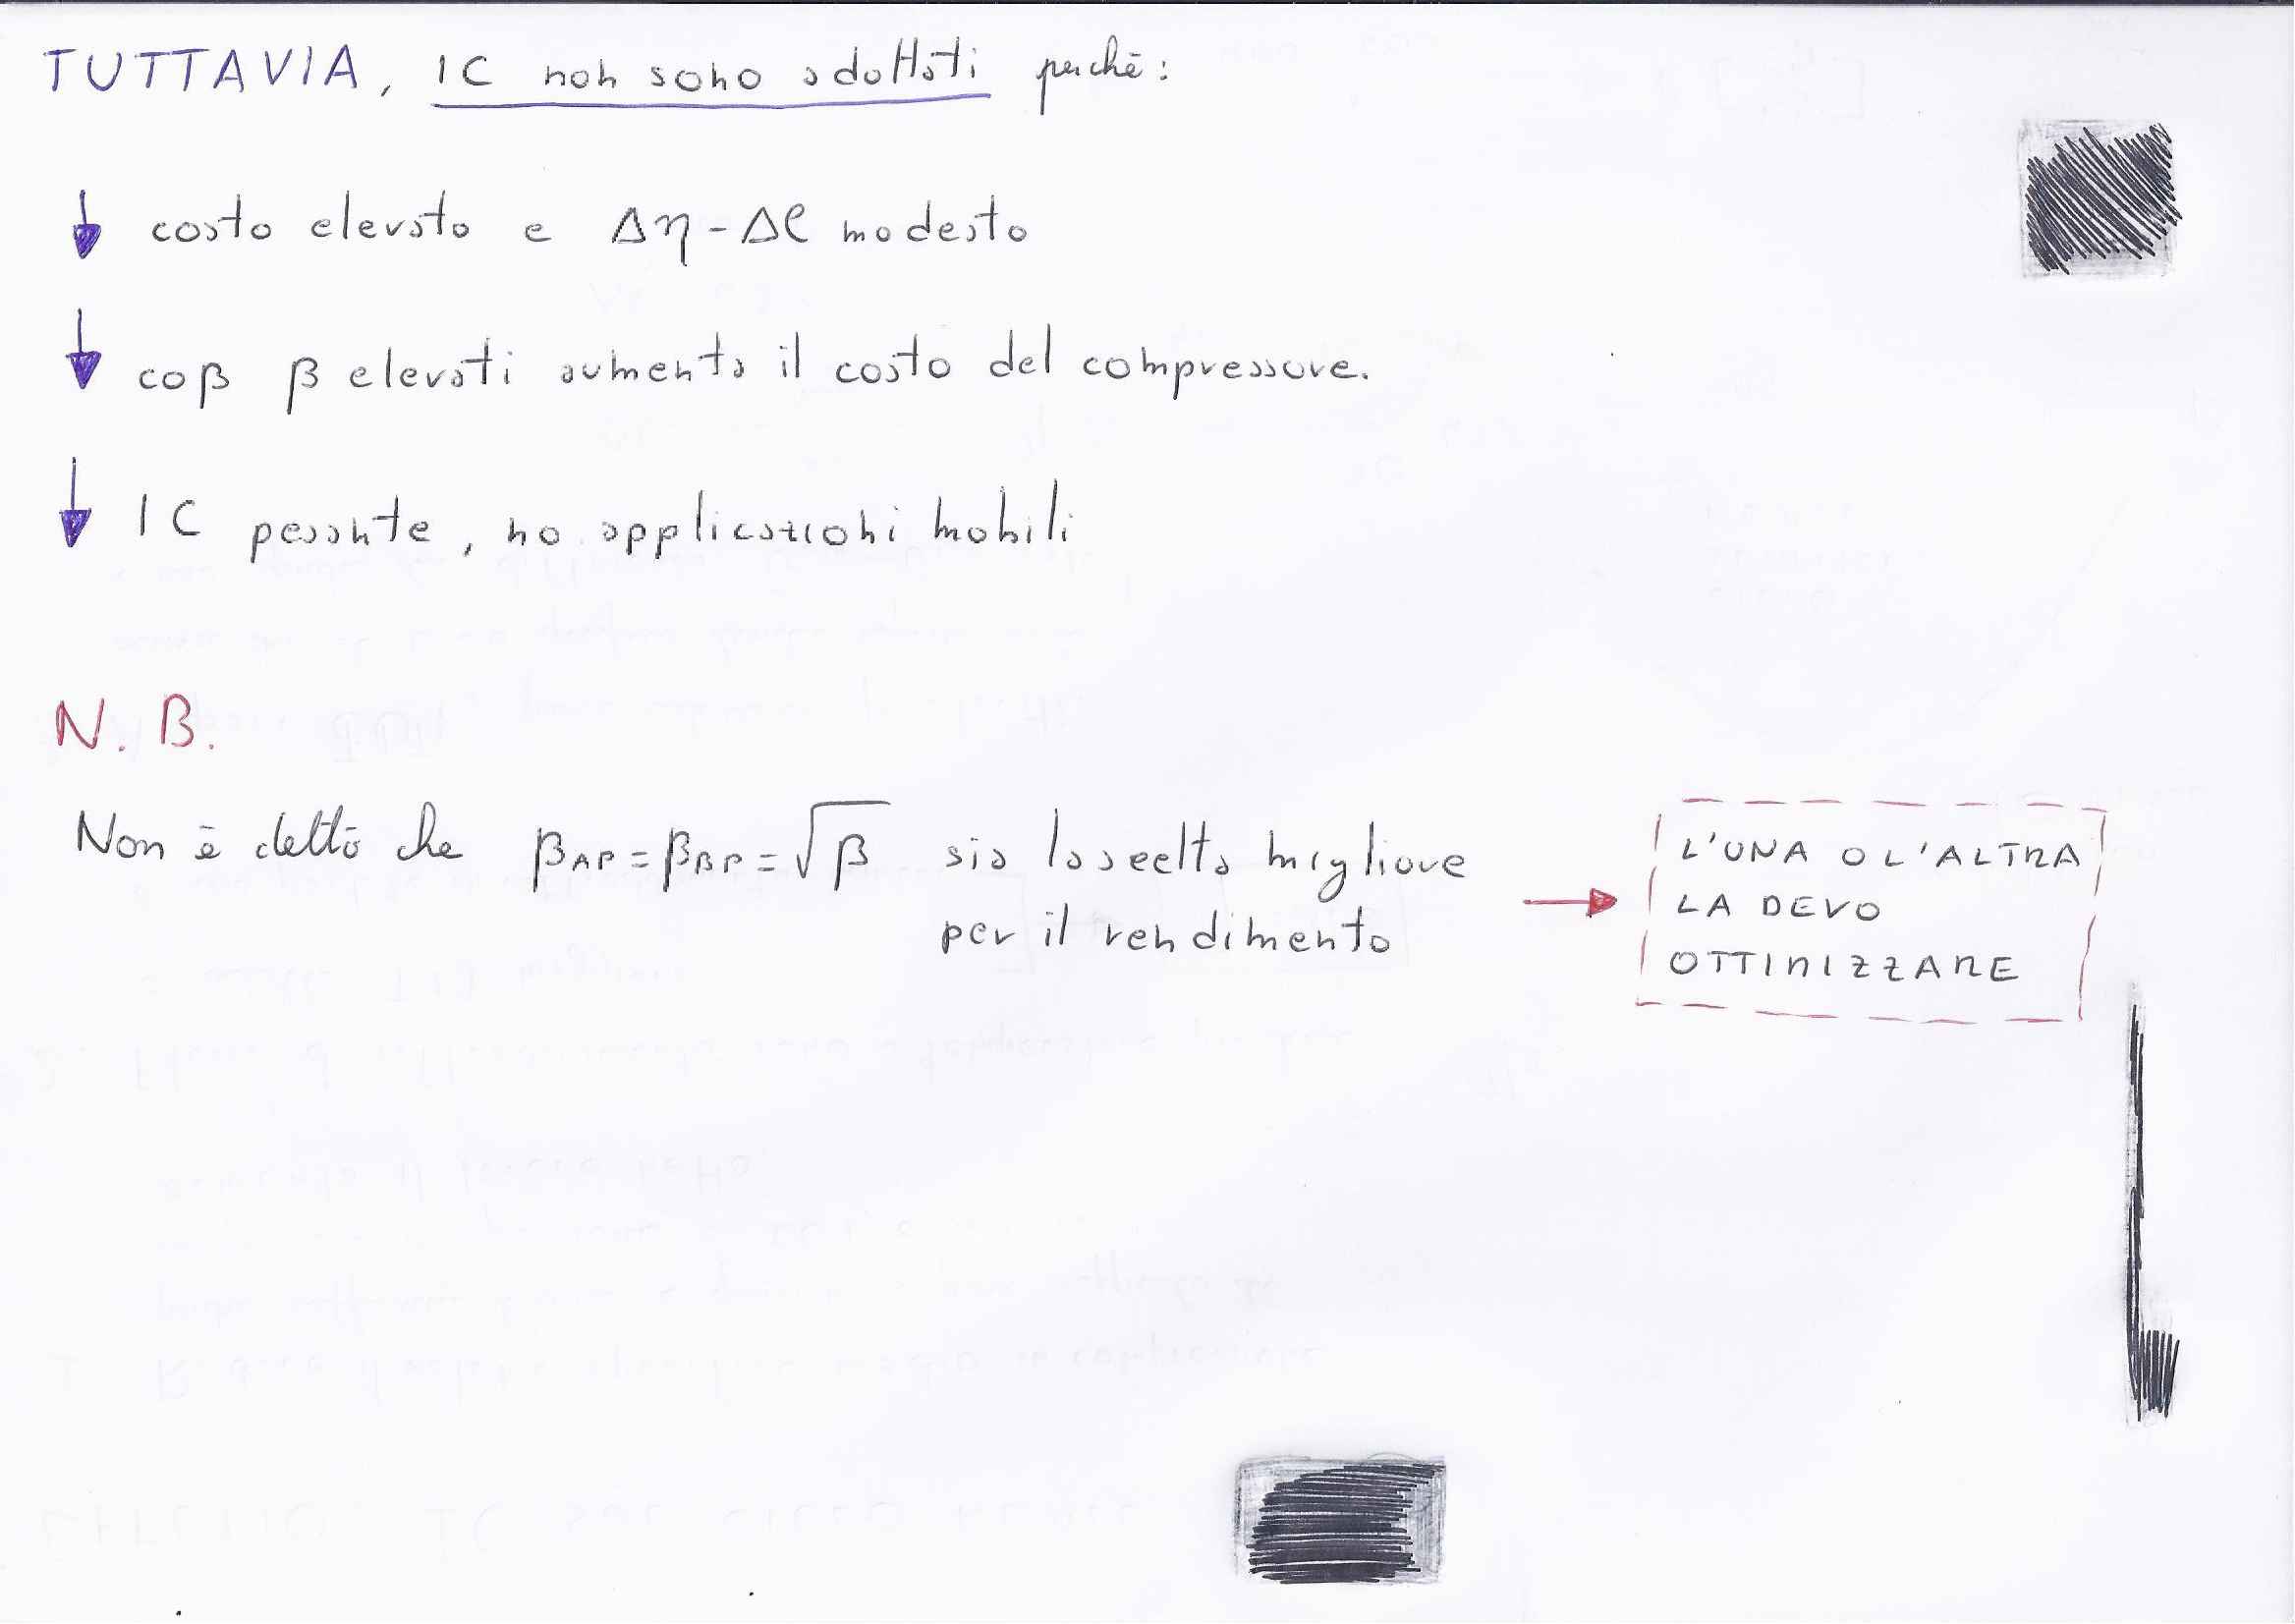 TUTTAVIA, IC non sono adottati perchè:
costo elevato e Δη - Δl modesto
coβ β elevati aumenta il costo del compressore.
IC pesante, no applicazioni mobili
N.B.
Non è detto che βAP = βBP = √β sia la scelta migliore
per il rendimento
L'UNA O L'ALTRA
LA DEVO
OTTIMIZZARE